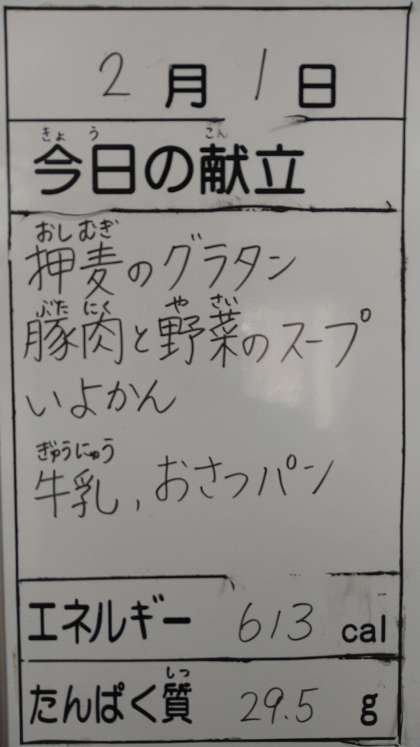 2月1日
きょう こん
今日の献立
おしむぎ
押麦のグラタン
ぶたにく やさい
豚肉と野菜のスープ
いよかん
ぎゅうにゅう
牛乳, おさつパン
エネルギー 613 cal
しつ
たんぱく質 29.5 g